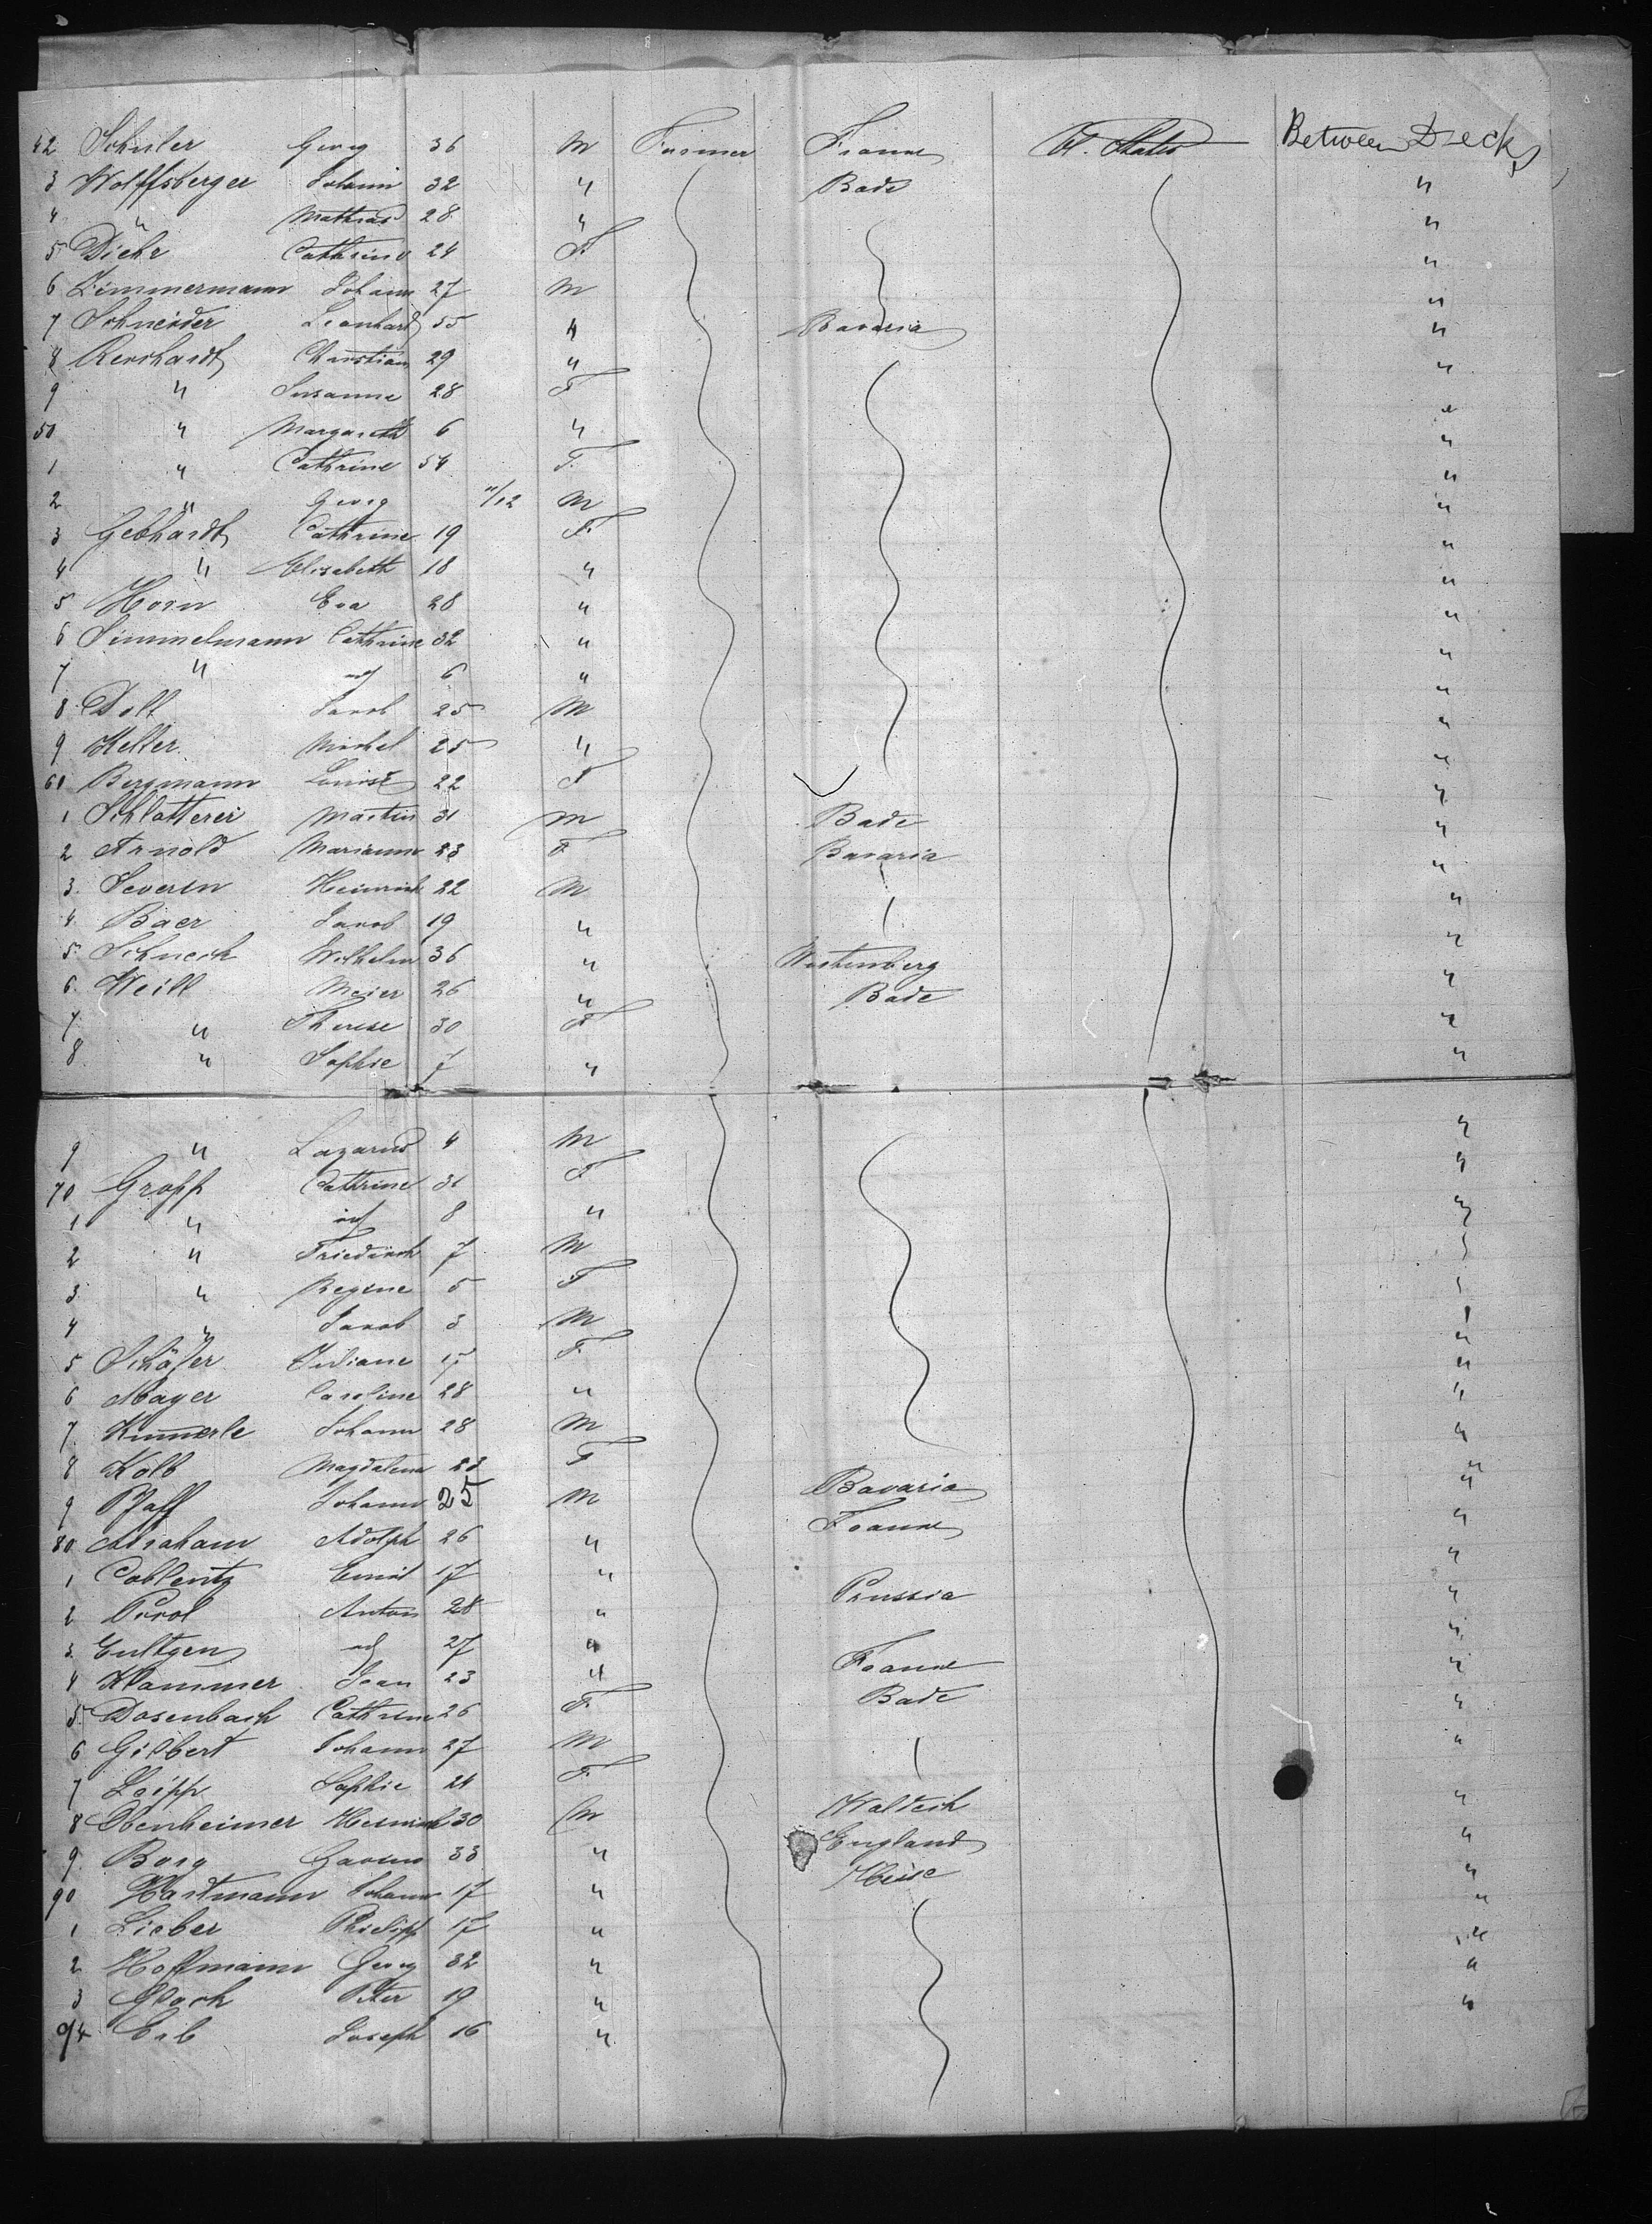 42 Schuler Georg 36 M Farmer France U. States Between Deck
3 Wolffsberger Johann 32 " Bade "
4 " Mathias 28 " "
5 Diehr Cathrine 24 F "
6 Zimmermann Johann 27 M "
7 Schneider Leonhard 55 " Bavaria "
8 Renhardt Christian 29 " "
9 " Susanne 28 F "
50 " Margareth 6 " "
1 " Cathrine 54 F "
2 " Georg 11/12 M "
3 Gebhardt Cathrine 19 F "
4 " Elisabeth 18 " "
5 Horn Eva 28 " "
6 Simmelmann Cathrine 32 " "
7 " id 6 " "
8 Doll Jacob 25 M "
9 Keller Michel 25 " "
60 Bergmann Louise 22 F "
1 Schlatterer Martin 31 M Bade "
2 Arnold Marianne 23 F Bavaria "
3 Severin Heinrich 22 M "
4 Baer Jacob 19 " "
5 Schneck Wilhelm 36 " Wurtemberg "
6 Weill Meier 26 " Bade "
7 " Therese 30 F "
8 " Sophie 7 " "
9 " Lazarus 4 M "
70 Gropp Cathrine 31 F "
1 " id 8 " "
2 " Friedrich 7 M "
3 " Regine 5 F "
4 " Jacob 3 M "
5 Schäfer Juliane F "
6 Mayer Caroline 28 " "
7 Kimmerle Johann 28 M "
8 Kolb Magdalena 23 F "
9 Pfaff Johann 25 M Bavaria "
80 Abraham Adolph 26 " France "
1 Coblentz Emil 17 " "
2 Anton 28 " Prussia "
3 Eultgen id 27 " "
4 Klammer Jean 23 " France "
5 Dosenbach Cathrine 26 F Bade "
6 Gilbert Johann 27 M "
7 Loipp Sophie 24 F
8 Obenheimer Heinrich 30 M Waldeck "
9 Borg 33 " England "
90 Hartmann Johann 17 " Hesse "
1 Lieber Philipp 17 " "
2 Hoffmann Georg 32 " "
3 Glock Peter 19 " "
94 Erb Joseph 16 " "